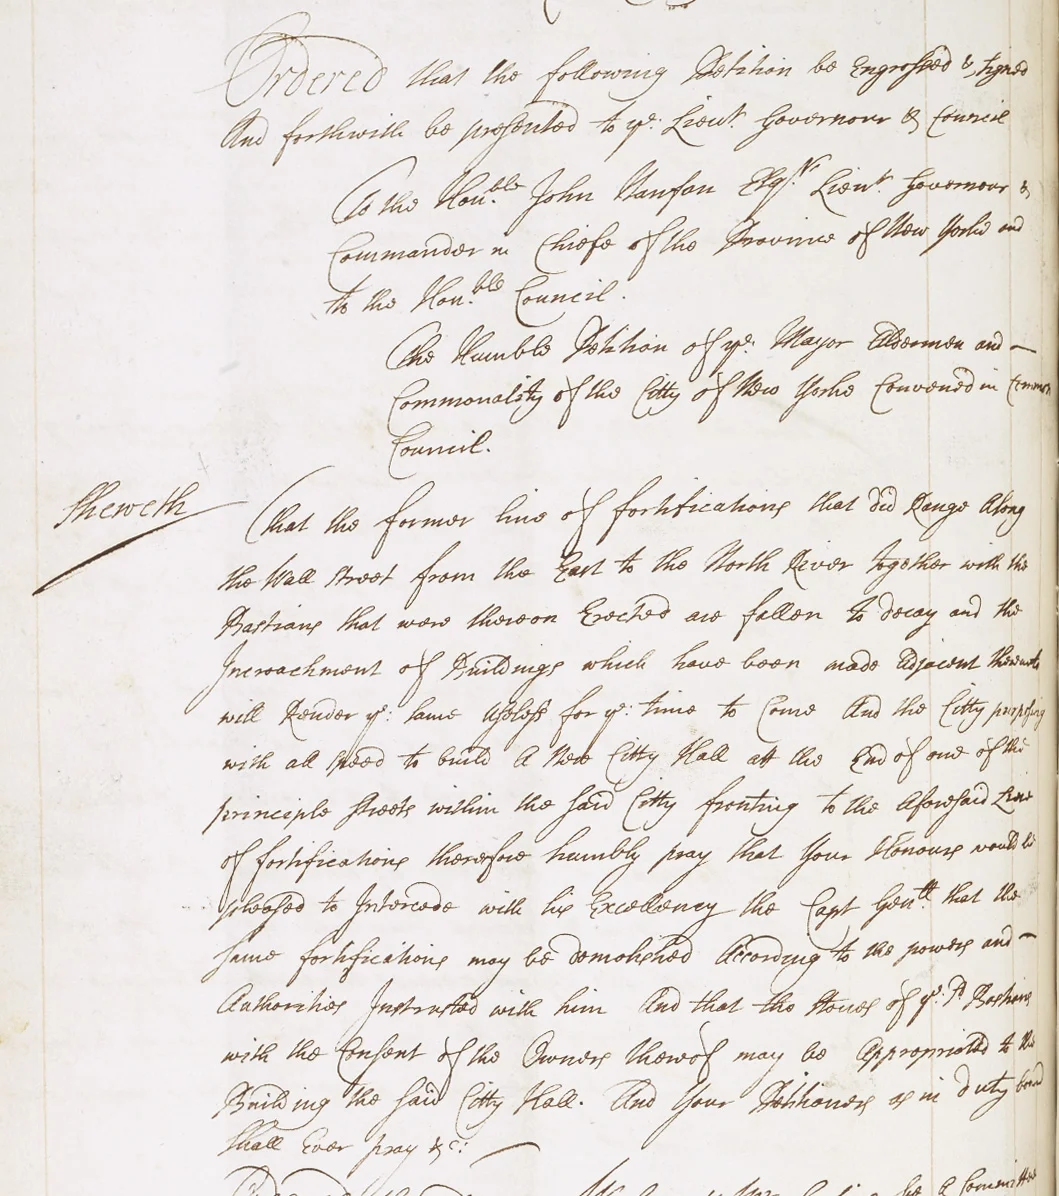 Ordered that the following Petition be Engrossed & signed
And forthwith be presented to ye: Lieut. Governour & Council
To the Hon.ble John Nanfan Esqr. Lieut. Governour &
Commander in Chiefe of the Province of New Yorke and
to the Hon.ble Council.
The Humble Petition of ye: Mayor Aldermen and
Commonality of the Citty of New Yorke Convened in Common
Council.
Sheweth
That the former line of fortifications that did Range Along
the Wall Street from the East to the North River together with the
Bastians that were thereon Erected are fallen to decay and the
Incroachment of Buildings which have been made Adjacent thereunto
will Render ye: same Useless for ye: time to Come And the Citty purposing
with all speed to build A New Citty Hall att the End of one of the
principle streets within the said Citty fronting to the Aforesaid Line
of fortifications therefore humbly pray that Your Honours would be
pleased to Intercede with his Excellency the Capt Genll. that the
same fortifications may be demolished According to the powers and
Authorities Instrusted with him And that the stones of ye. sd. Bastians
with the Consent of the Owners thereof may be Appropriated to the
Building the said Citty Hall. And Your Petitioners as in duty bound
shall Ever pray &c: